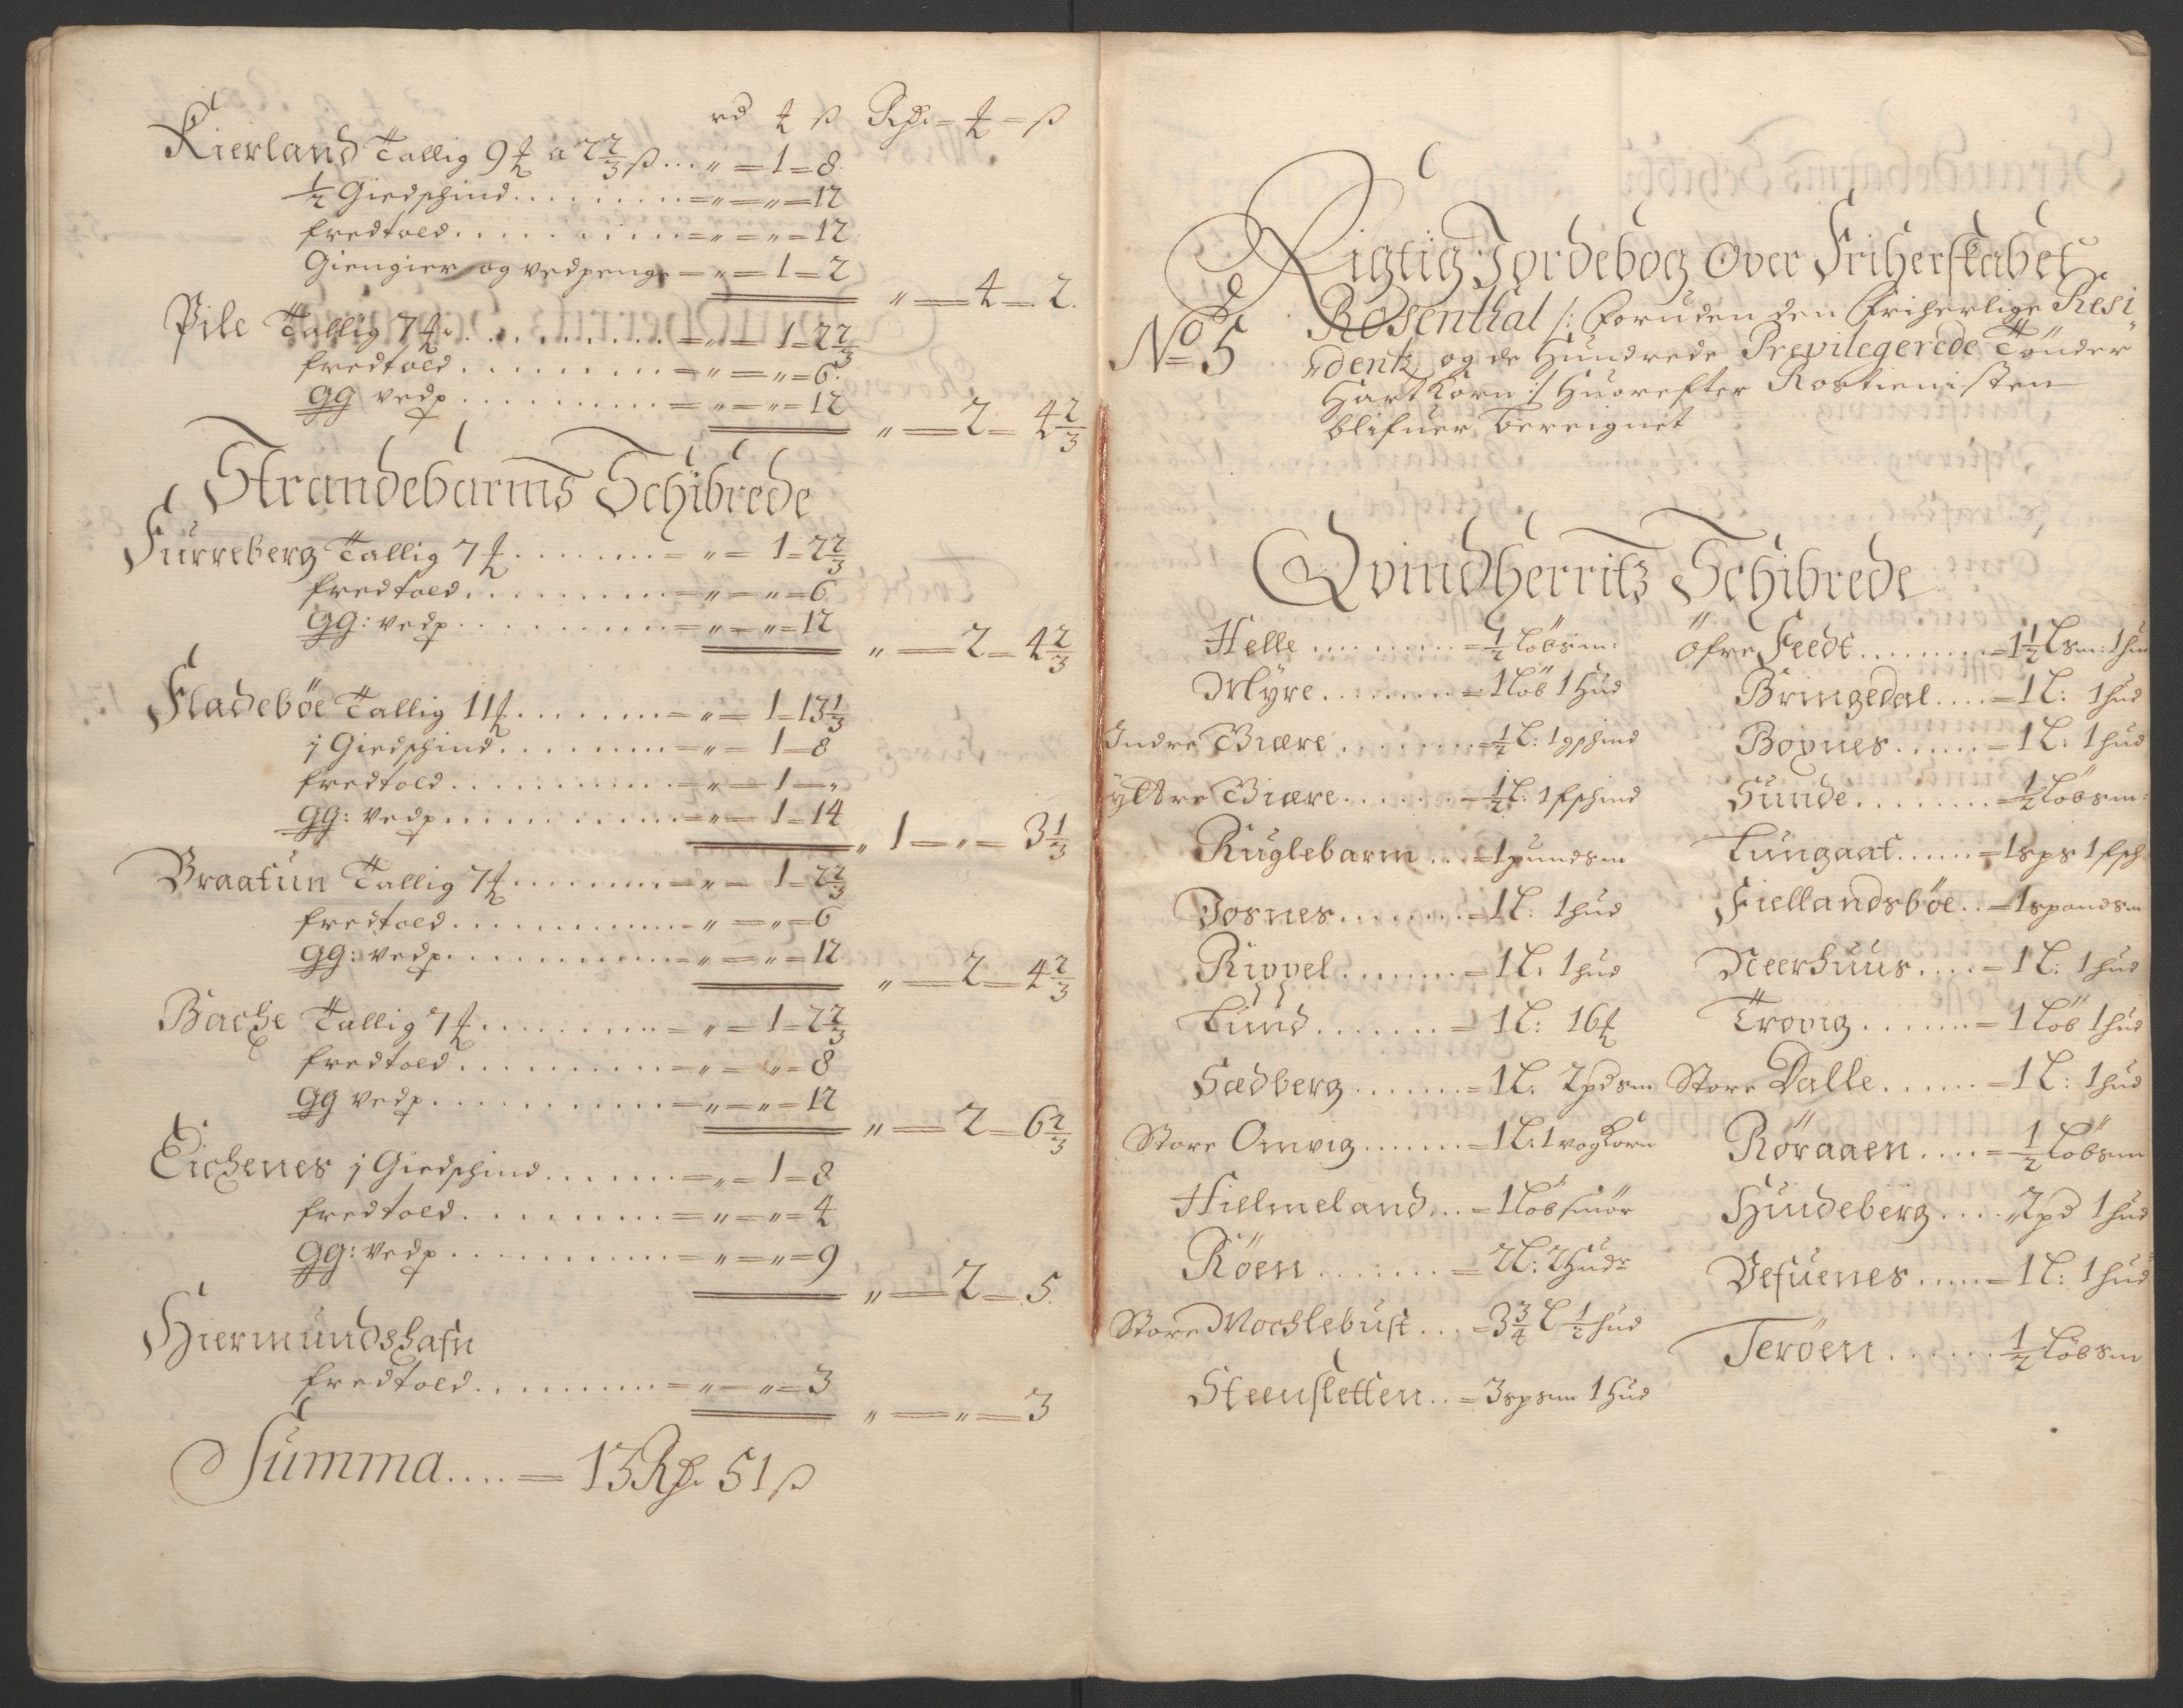 rd ₰ ß Rd: = ₰ = ß
Kierland Tallig 9 ₰ a 2 2/3 ß... " = 1 = 8
1/2 Giedschind......... = " = " = 12
fredtold........... = " = " = 12
Giengier og vedpenge = " = 1 = 2
" = 4 = 2.
Pile Tallig 7 ₰........... = " = 1 = 2 2/3
fredtold.......... = " = " = 6.
GG vedp.......... = " = " = 12
" = 2 = 4 2/3
Strandebarms Schibrede
Furreberg Tallig 7 ₰........ = " = 1 = 2 2/3
fredtold.......... = " = " = 6
GG: vedp.......... = " = " = 12
" = 2 = 4 2/3
Fladeböe Tallig 11 ₰........ = " = 1 = 13 1/3
j Giedschind......... = " = 1 = 8
fredtold........... = " = 1 = "
GG: vedp........... = " = 1 = 14
" 1 = " = 3 1/3
Braatun Tallig 7 ₰......... = " = 1 = 2 2/3
fredtold............ = " = " = 6
GG: vedp........... = " = " = 12
" = 2 = 4 2/3
Bache Tallig 7 ₰......... = " = 1 = 2 2/3
fredtold.......... = " = " = 8
GG vedp........... = " = " = 12
" = 2 = 6 2/3
Eichenes j Giedschind....... = " = 1 = 8
fredtold......... = " = " = 4
GG: vedp.......... = " = " = 9
" = 2 = 5.
Hiermundshafn
fredtold......... = " = " = 3
" = " = 3
Summa.... = 13 Rd. 51 ß
Rigtig Jordebog over Friherskabet
No 5
Rosenthal /: foruden den friherlige Resi
dentz og de Hundrede Previlegerede Tönder
Hart Korn :/ Huorefter Rostienisten
blifuer bereignet
Qvindherritz Schibrede
Helle.......... = 1/2 löbsm:
Myre......... = 1 löb 1 Hud
Indre Biære........ = 1/2 L: 1 gschind
yttre Biære....... = 1/2 L: 1 fschind
Kuglebarm... = 1 pundsm
Josnes........ = 1 L: 1 hud
Rippel........ = 1 L: 1 hud
Lund....... = 1 L: 16 ₰
Sædberg....... = 1 L. 2 pdsm
Store Omvig....... = 1 L: 1 vog Korn
Hielmeland... = 1 löb smör
Röen....... = 2 L: 2 Hudr
Store Mochlebust... = 3 3/4 L 1/2 hud
Steensletten.. = 3 spsm 1 Hud
öfre Feedt......... = 1 1/2 Lsm: 1 hud
Bringedal.... = 1 L: 1 hud
Bopnes...... = 1 L: 1 hud
Sunde........ = 1/2 löbsm:
Tungaat...... = 1 sps 1 fsch
Fiellandsböe.. = 1 spandsm
Neerhuus.... = 1 L: 1 hud
Trovig....... = 1 löb 1 hud
Store Dalle...... = 1 L: 1 hud
Röraaen.... = 1/2 löbsm
Hundeberg.... " 2 pd 1 hud
Vefuenes..... = 1 L: 1 hud
Teröen....... 1/2 löbsm